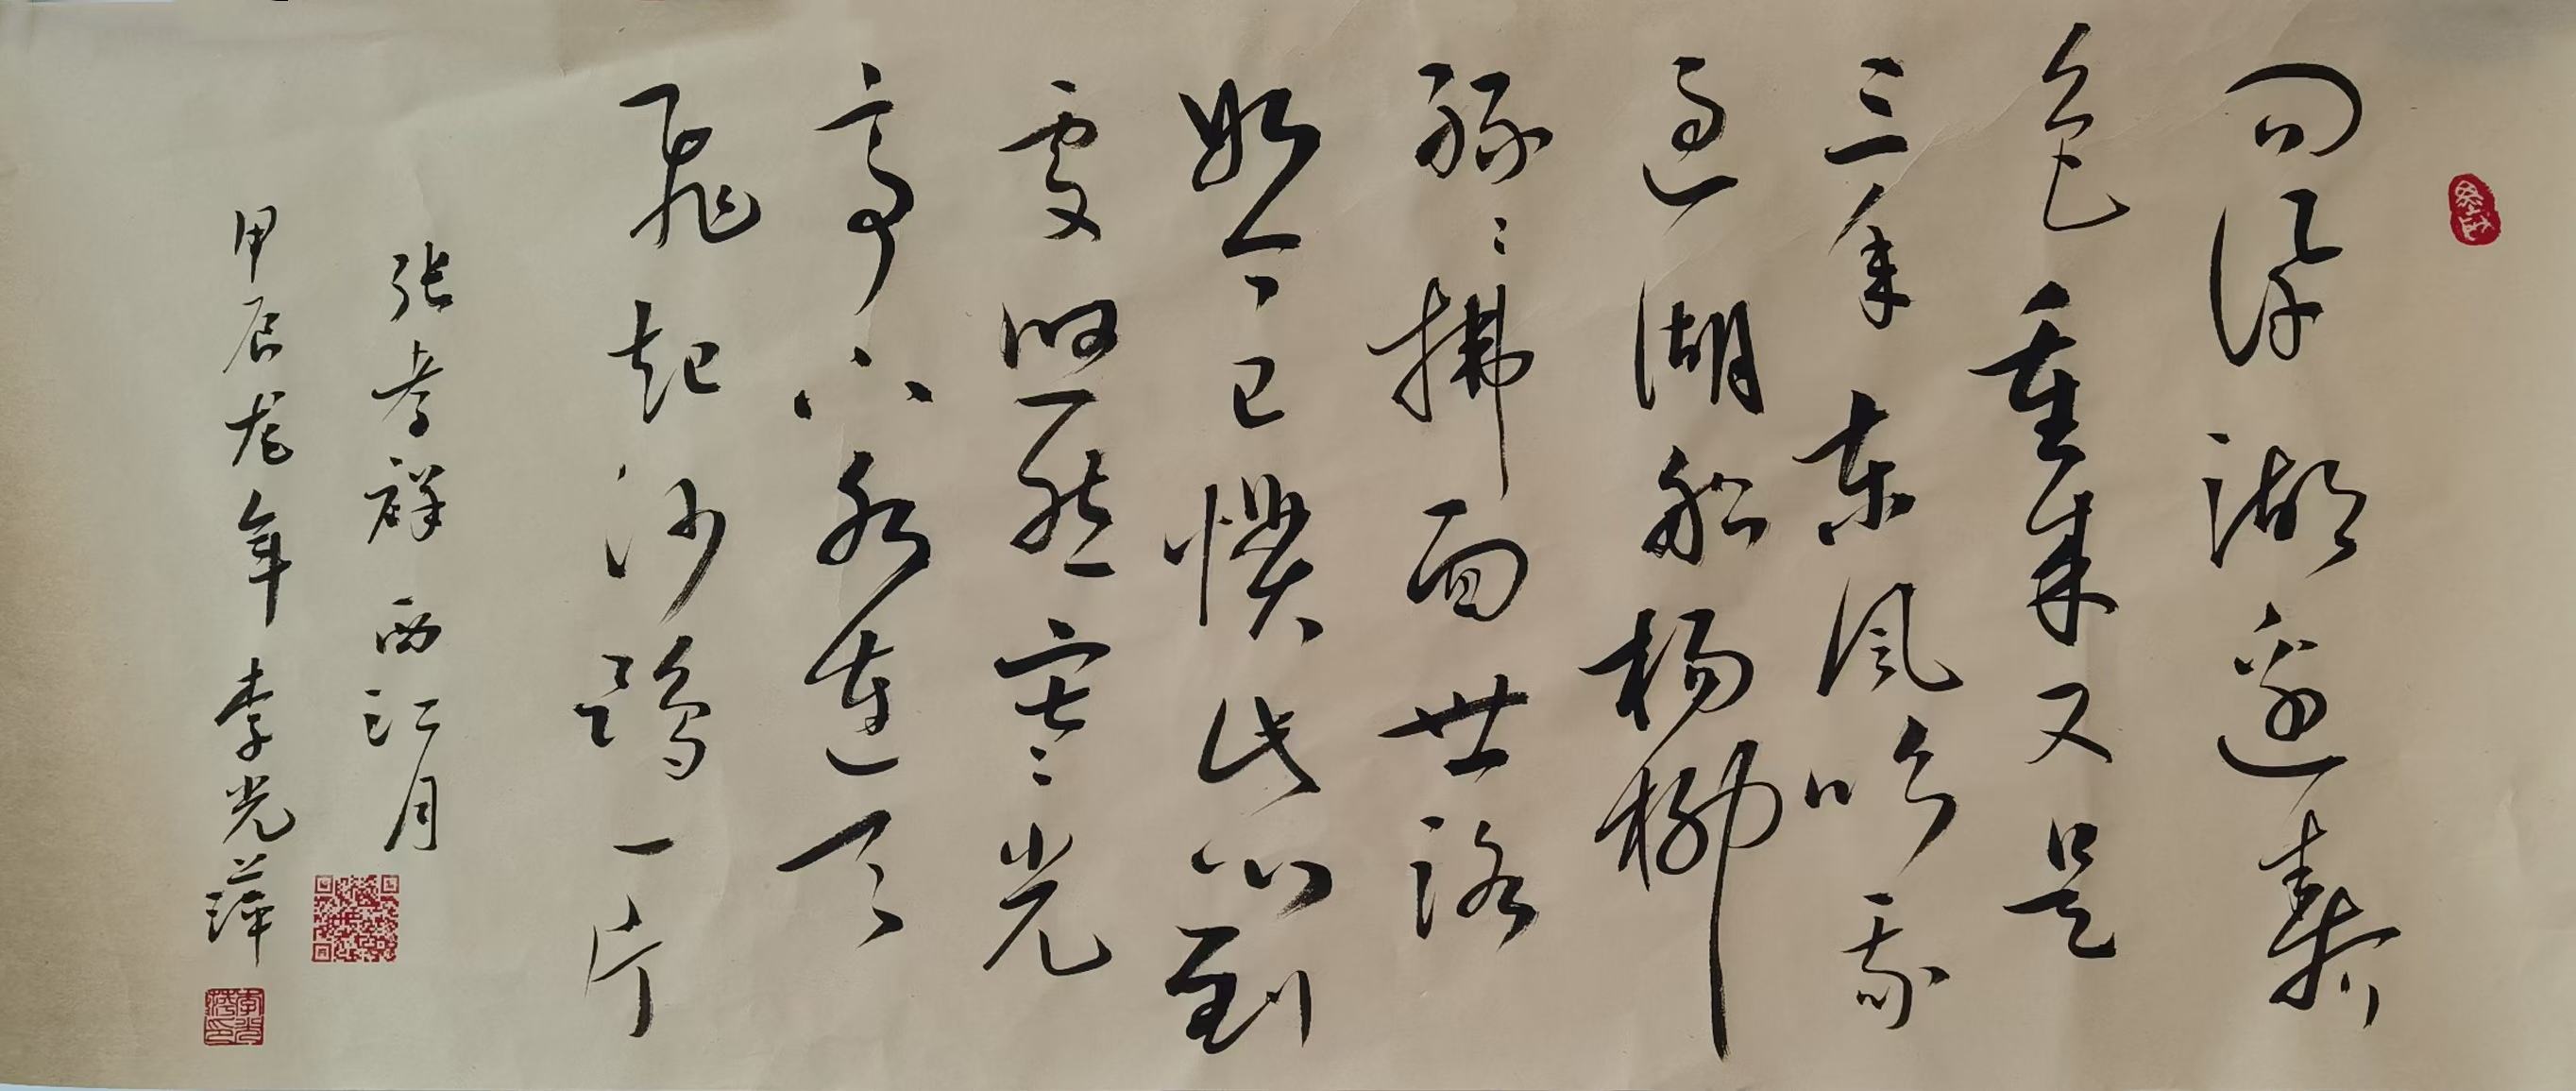 问讯湖边春
色重来又是
三年东风吹我
过湖船杨柳
丝丝拂面世路
如今已惯此心到
处悠然寒光
亭下水连天
飞起沙鸥一片
张孝祥西江月
甲辰龙年李光萍